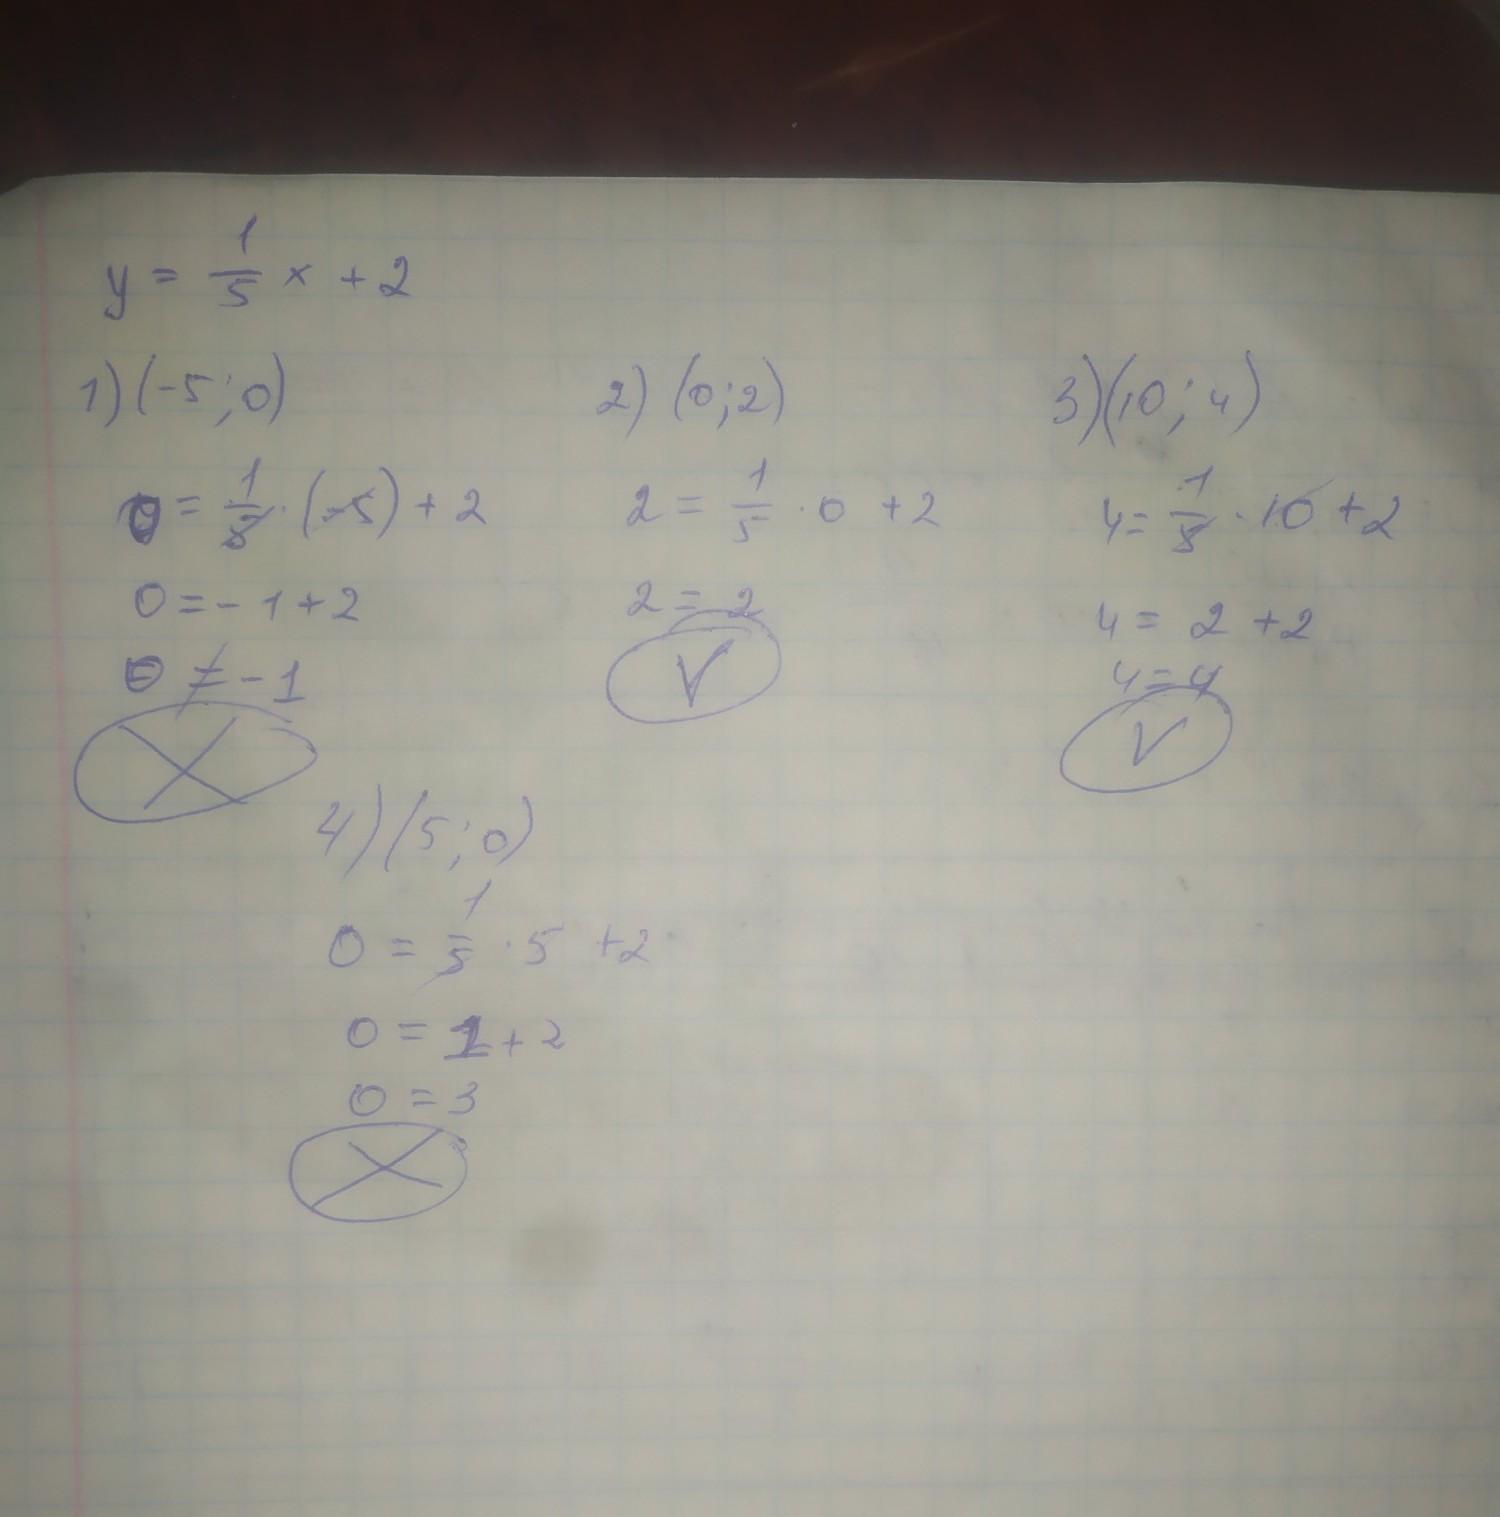 y = 1/5 x + 2
1) (-5; 0)
0 = 1/5 · (-5) + 2
0 = - 1 + 2
0 ≠ - 1
2) (0; 2)
2 = 1/5 · 0 + 2
2 = 2
V
3) (10; 4)
4 = 1/5 · 10 + 2
4 = 2 + 2
4 = 4
V
4) (5; 0)
0 = 1/5 · 5 + 2
0 = 1 + 2
0 = 3